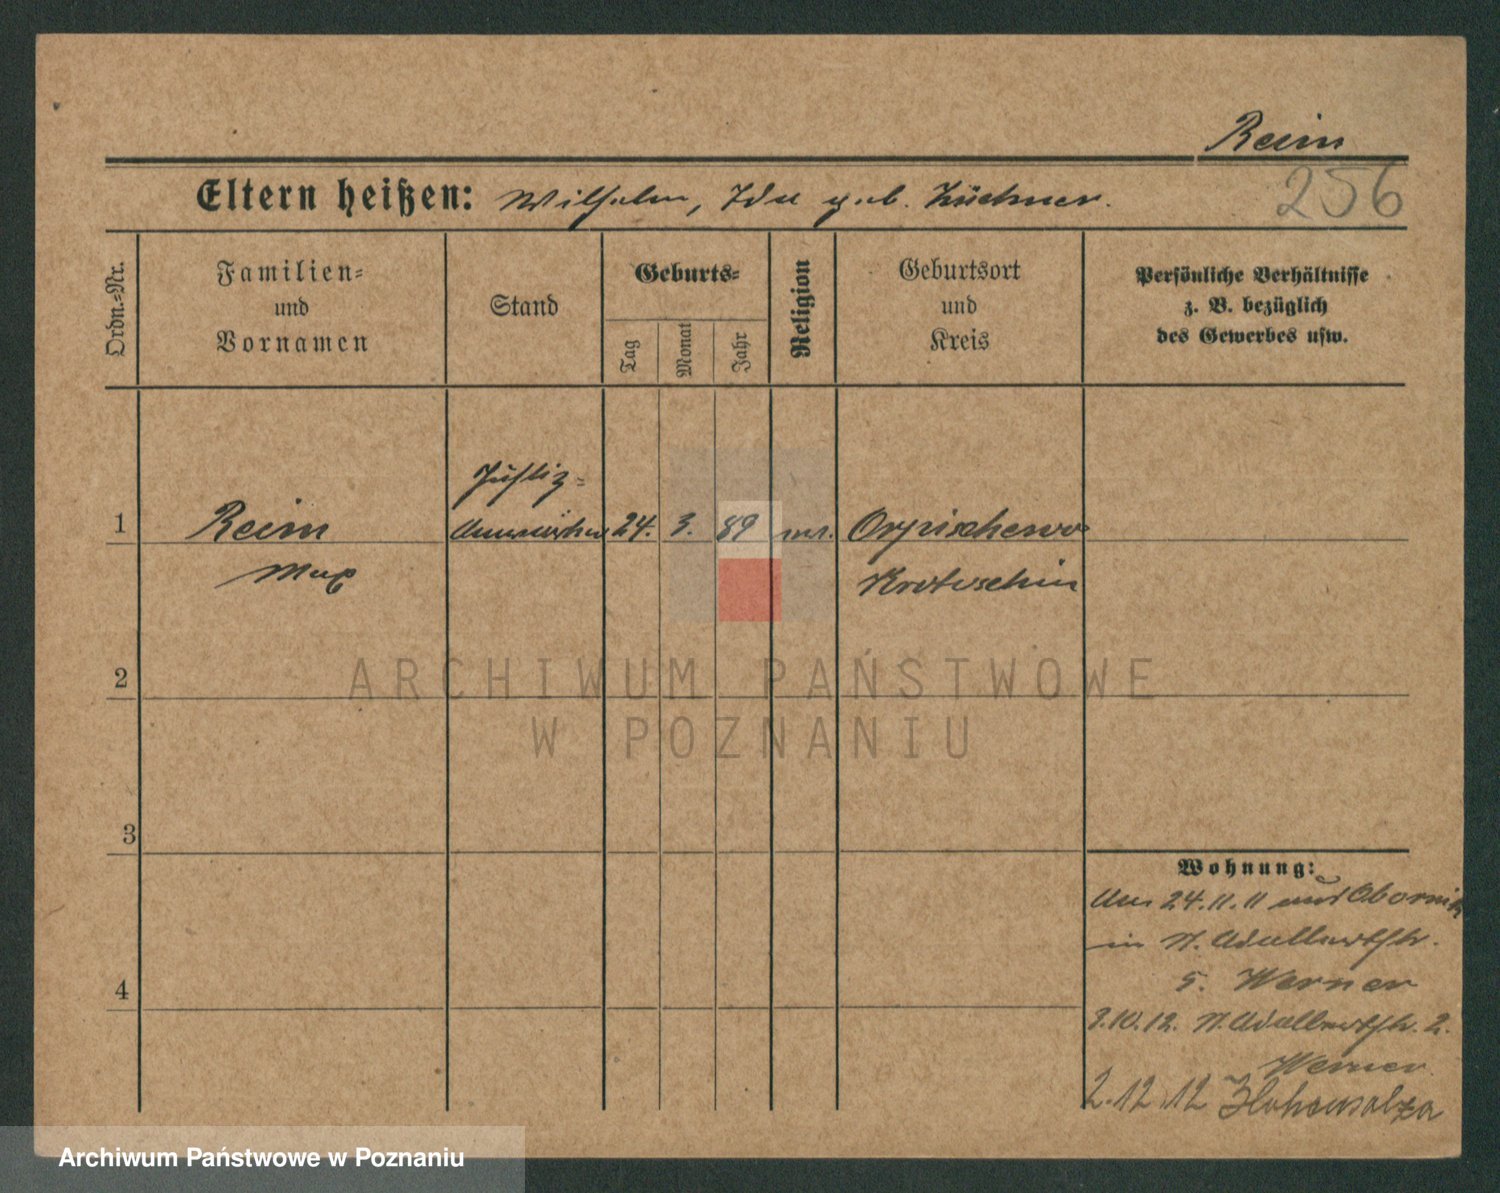 Reim
256
Eltern heißen: Wilhelm, Ida geb. Züchner.
Ordn.=Nr.
Familien=
und
Vornamen
Stand
Geburts=
Tag
Monat
Jahr
Religion
Geburtsort
und
Kreis
Persönliche Verhältnisse
z. B. bezüglich
des Gewerbes usw.
Justiz=
1 Reim Anwärter 24. 3. 89 Orpischewo
Max Krotoschin
2
ARCHIWUM PAŃSTWOWE
W POZNANIU
3
Wohnung:
24.11.11 Obornik
in N. Adalbertstr.
5. Werner
3.10.12. N. Adalbertstr. 2.
Werner
4
2.12.12 Hohensalza
Archiwum Państwowe w Poznaniu